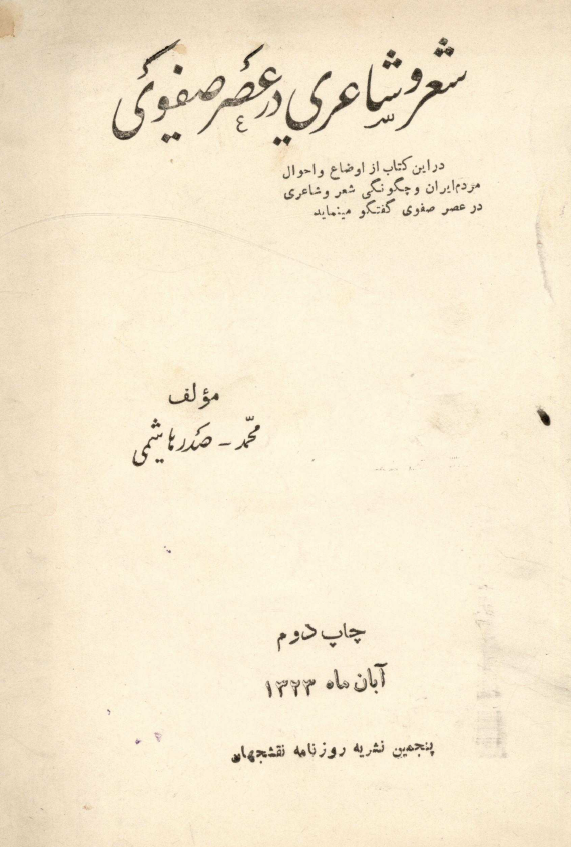 شعر و شاعری در عصر صفوی
در این کتاب از اوضاع و احوال
مردم ایران و چگونگی شعر و شاعری
در عصر صفوی گفتگو مینماید
مؤلف
محمّد - صدر هاشمی
چاپ دوم
آبان ماه ۱۳۲۳
پنجمین نشریه روزنامه نقشجهان